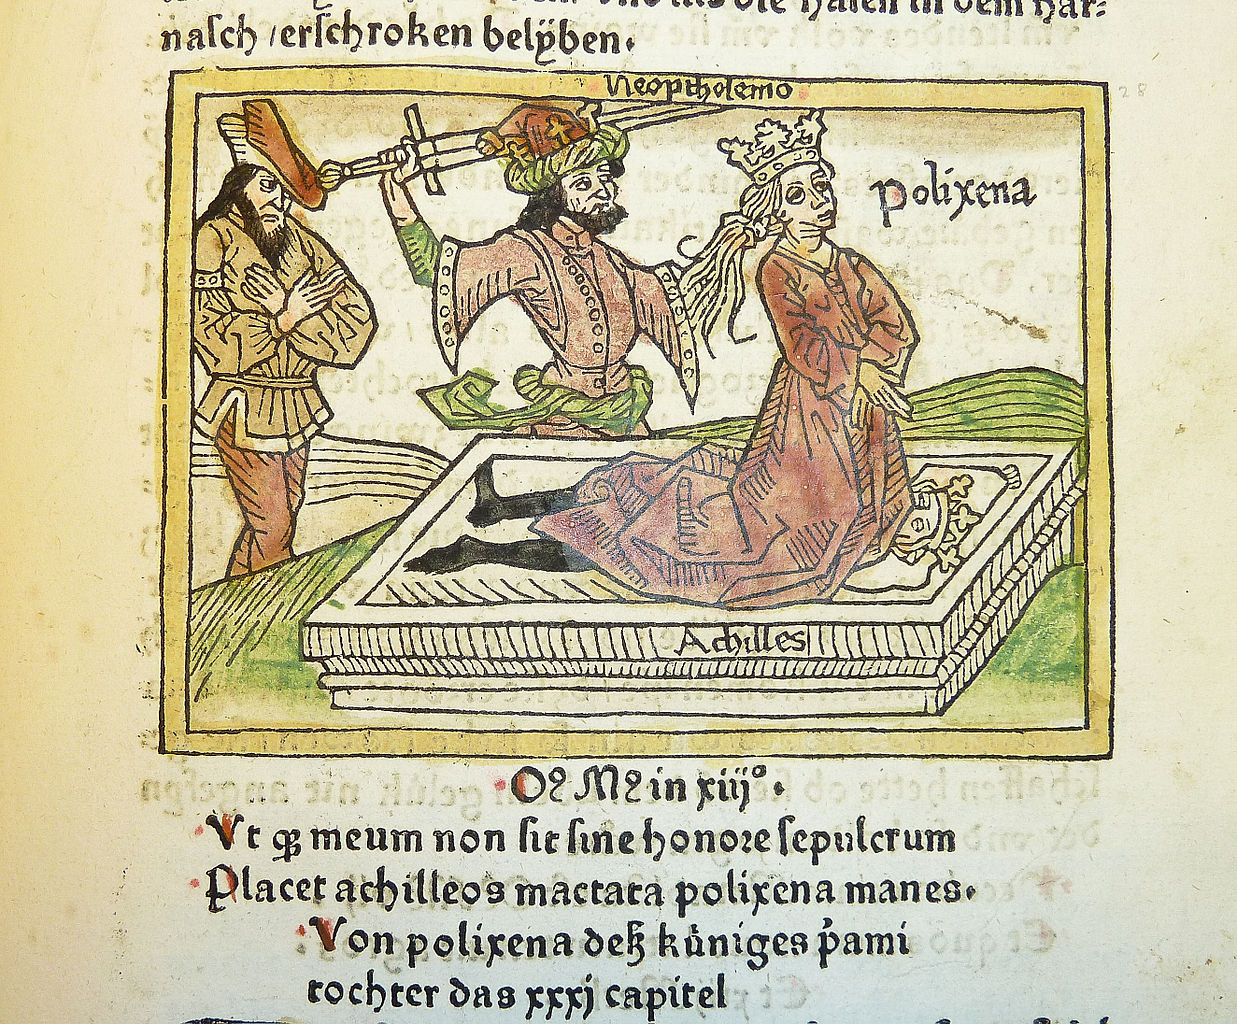 in dem har⸗
naſch /erſchroken belÿben.
Neoptholemo
polixena
28
Achilles
Oꝛ Mꝛ in xiijº.
Vt ꝙ meum non ſit ſine honoꝛe ſepulcrum
Placet achilleos mactata polixena manes.
Von polixena deß kúniges p̓ami
tochter das xxxj capitel